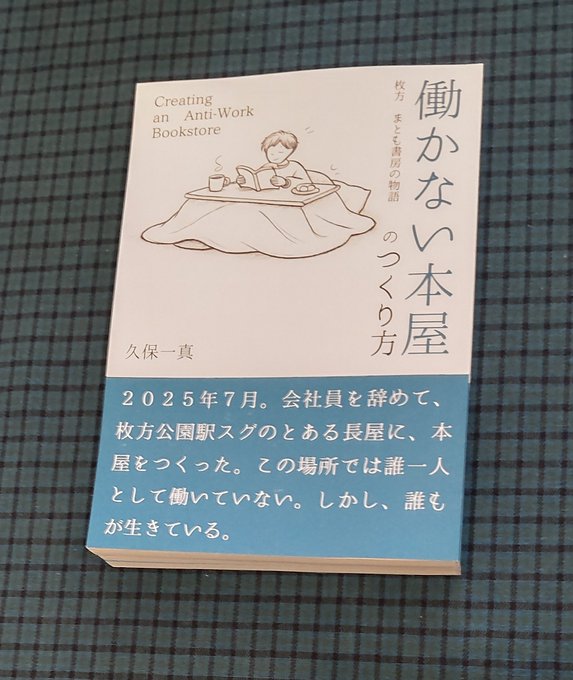 Creating
an Anti-Work
Bookstore
働かない本屋
のつくり方
枚方 まとも書房の物語
久保一真
２０２５年７月。会社員を辞めて、
枚方公園駅スグのとある長屋に、本
屋をつくった。この場所では誰一人
として働いていない。しかし、誰も
が生きている。